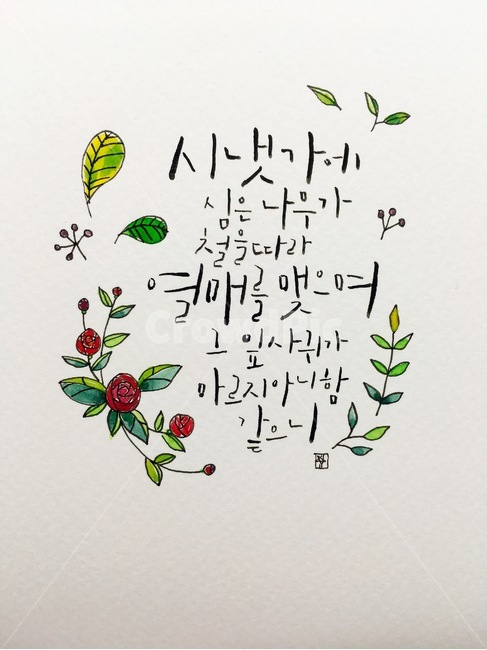 시냇가에
심은 나무가
철을 따라
열매를 맺으며
그 잎사귀가
마르지아니함
같으니